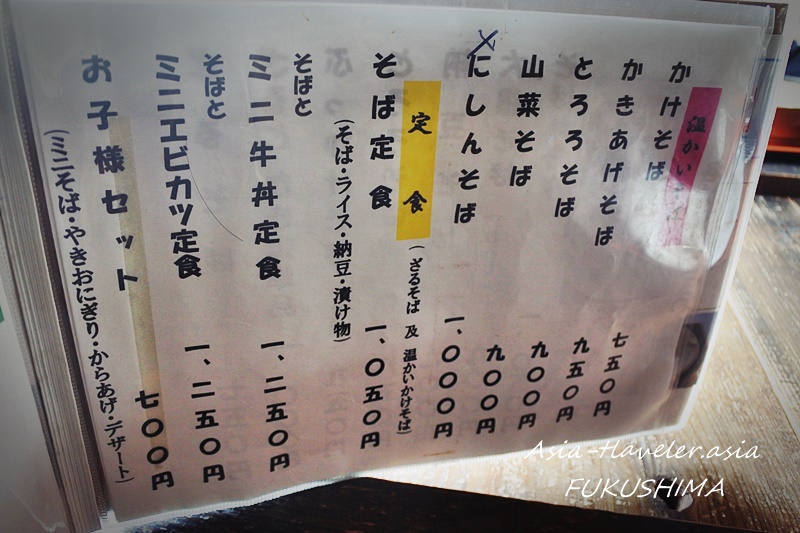 温かい
かけそば 七五〇円
かきあげそば 九五〇円
とろろそば 九〇〇円
山菜そば 九〇〇円
にしんそば 一、〇〇〇円
定食 (ざるそば 及 温かいかけそば)
そば定食 一、〇五〇円
(そば・ライス・納豆・漬け物)
そばと
ミニ牛丼定食 一、二五〇円
そばと
ミニエビカツ定食 一、二五〇円
お子様セット 七〇〇円
(ミニそば・やきおにぎり・からあげ・デザート)
Asia-Haveler.asia
FUKUSHIMA